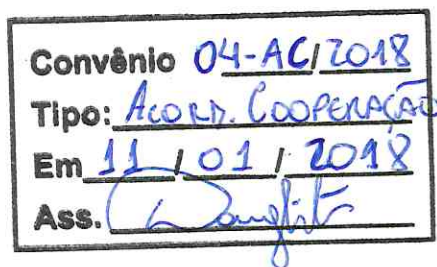 Convênio 04-AC/2018
Tipo: Acord. Cooperação
Em 11 / 01 / 2018
Ass.